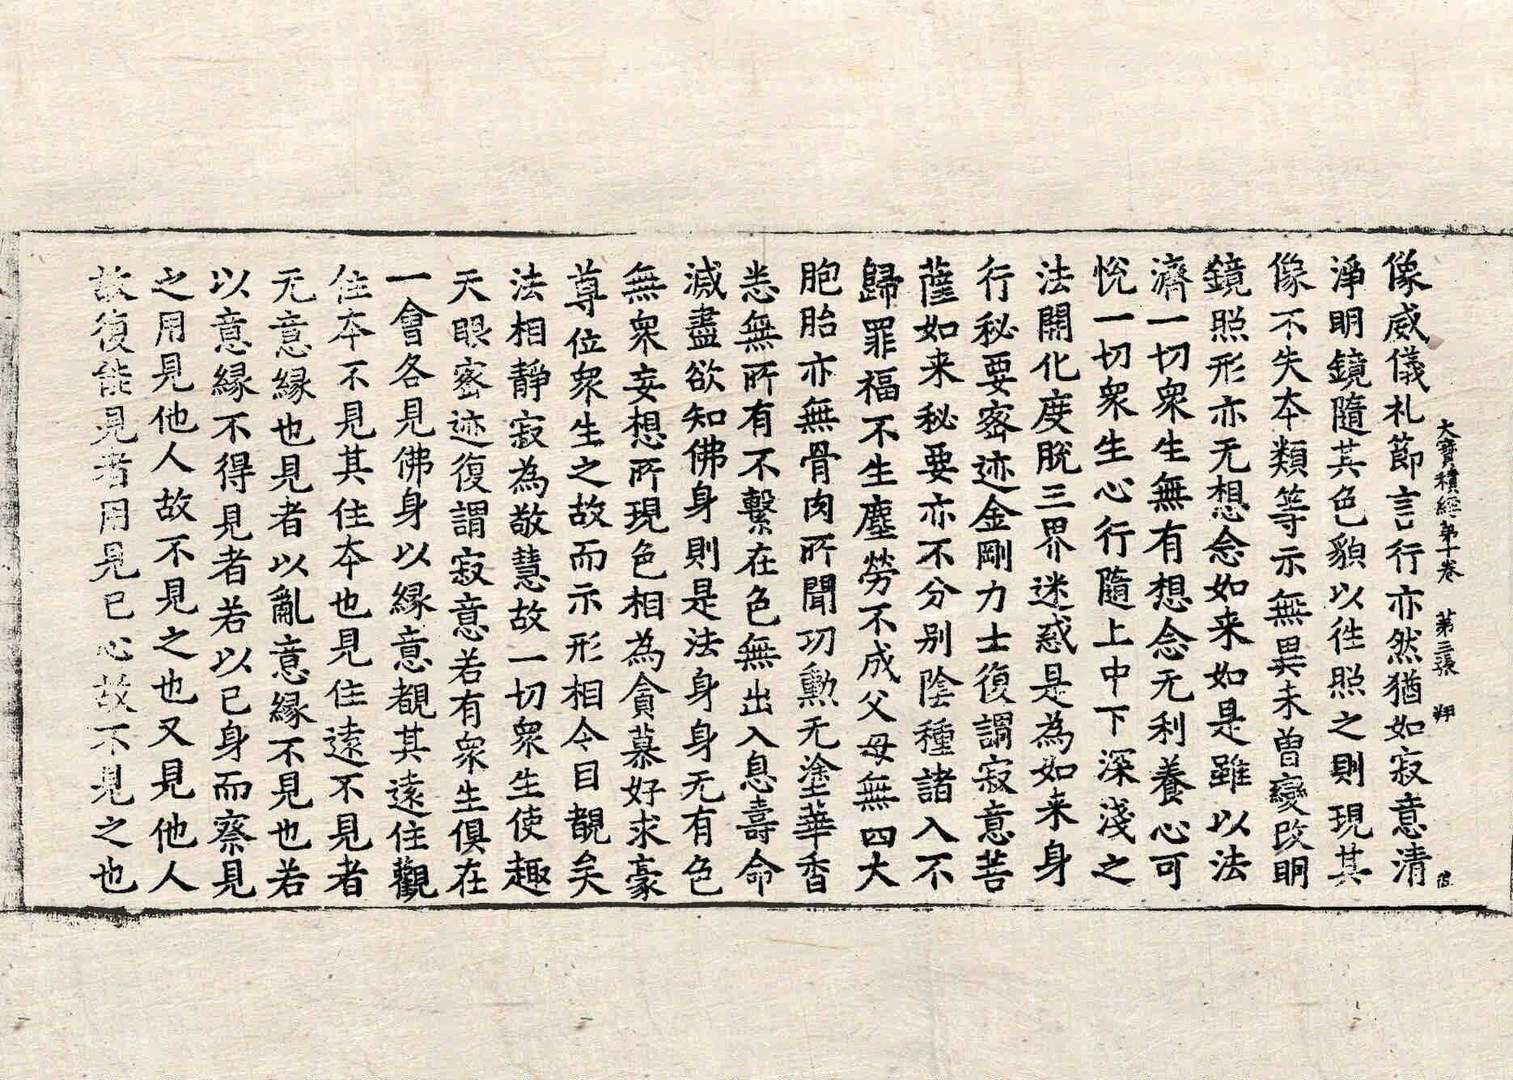 大寶積經第十卷　第三張　翔
像威儀礼節言行亦然猶如寂意清
淨明鏡隨其色貌以往照之則現其
像不失本類等示無異未曾變改明
鏡照形亦无想念如来如是雖以法
濟一切衆生無有想念无利養心可
悅一切衆生心行隨上中下深淺之
法開化度脫三界迷惑是為如来身
行秘要密迹金剛力士復謂寂意菩
薩如来秘要亦不分别陰種諸入不
歸罪福不生塵勞不成父母無四大
胞胎亦無骨肉所聞功勲无塗華香
悉無所有不繫在色無出入息壽命
滅盡欲知佛身則是法身身无有色
無衆妄想所現色相為貪慕好求豪
尊位衆生之故而示形相令目覩矣
法相靜寂為敬慧故一切衆生使趣
天眼密迹復謂寂意若有衆生俱在
一會各見佛身以縁意覩其遠住觀
住本不見其住本也見住遠不見者
无意縁也見者以亂意縁不見也若
以意縁不得見者若以已身而察見
之用見他人故不見之也又見他人
故復能見者用見已心故不見之也